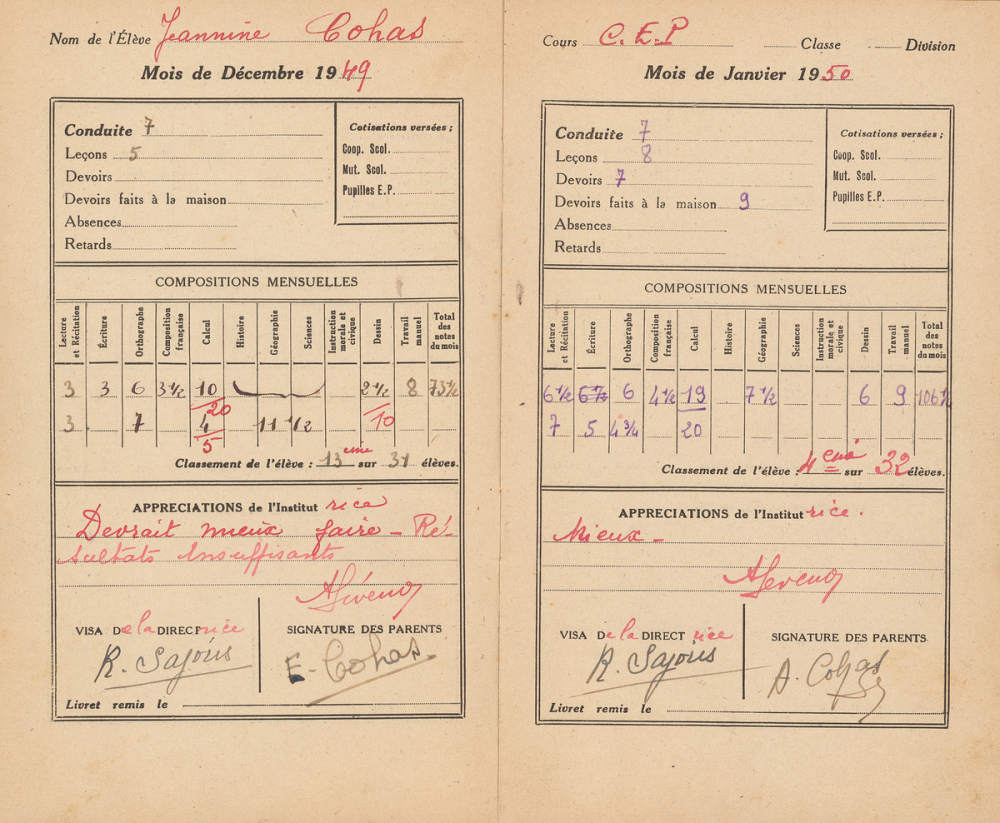 Nom de l'Élève Jeannine Cohas
Mois de Décembre 1949
Conduite 7
Leçons 5
Devoirs
Devoirs faits à la maison
Absences
Retards
Cotisations versées ;
Coop. Scol.
Mut. Scol.
Pupilles E.P.
COMPOSITIONS MENSUELLES
Lecture et Récitation Écriture Orthographe Composition française Calcul Histoire Géographie Sciences Instruction morale et civique Dessin Travail manuel Total des notes du mois
3 3 6 3 1/2 10/20 2 1/2/10 8 73 1/2
3 7 4/5 11 1/2
Classement de l'élève : 13 eme sur 31 élèves.
APPRECIATIONS de l'Institutrice
Devrait mieux faire - Ré-
sultats Insuffisants
VISA De la DIRECTrice SIGNATURE DES PARENTS
R. Sajous E. Cohas
Livret remis le
Cours C.E.P Classe Division
Mois de Janvier 1950
Conduite 7
Leçons 8
Devoirs 7
Devoirs faits à la maison 9
Absences
Retards
Cotisations versées ;
Coop. Scol.
Mut. Scol.
Pupilles E.P.
COMPOSITIONS MENSUELLES
Lecture et Récitation Écriture Orthographe Composition française Calcul Histoire Géographie Sciences Instruction morale et civique Dessin Travail manuel Total des notes du mois
6 1/2 6 1/2 6 4 1/2 19 7 1/2 6 9 106 1/2
7 5 4 3/4 20
Classement de l'élève : 4 eme sur 32 élèves.
APPRECIATIONS de l'Institutrice.
Mieux -
VISA De la DIRECTrice SIGNATURE DES PARENTS
R. Sajous A. Cohas
Livret remis le